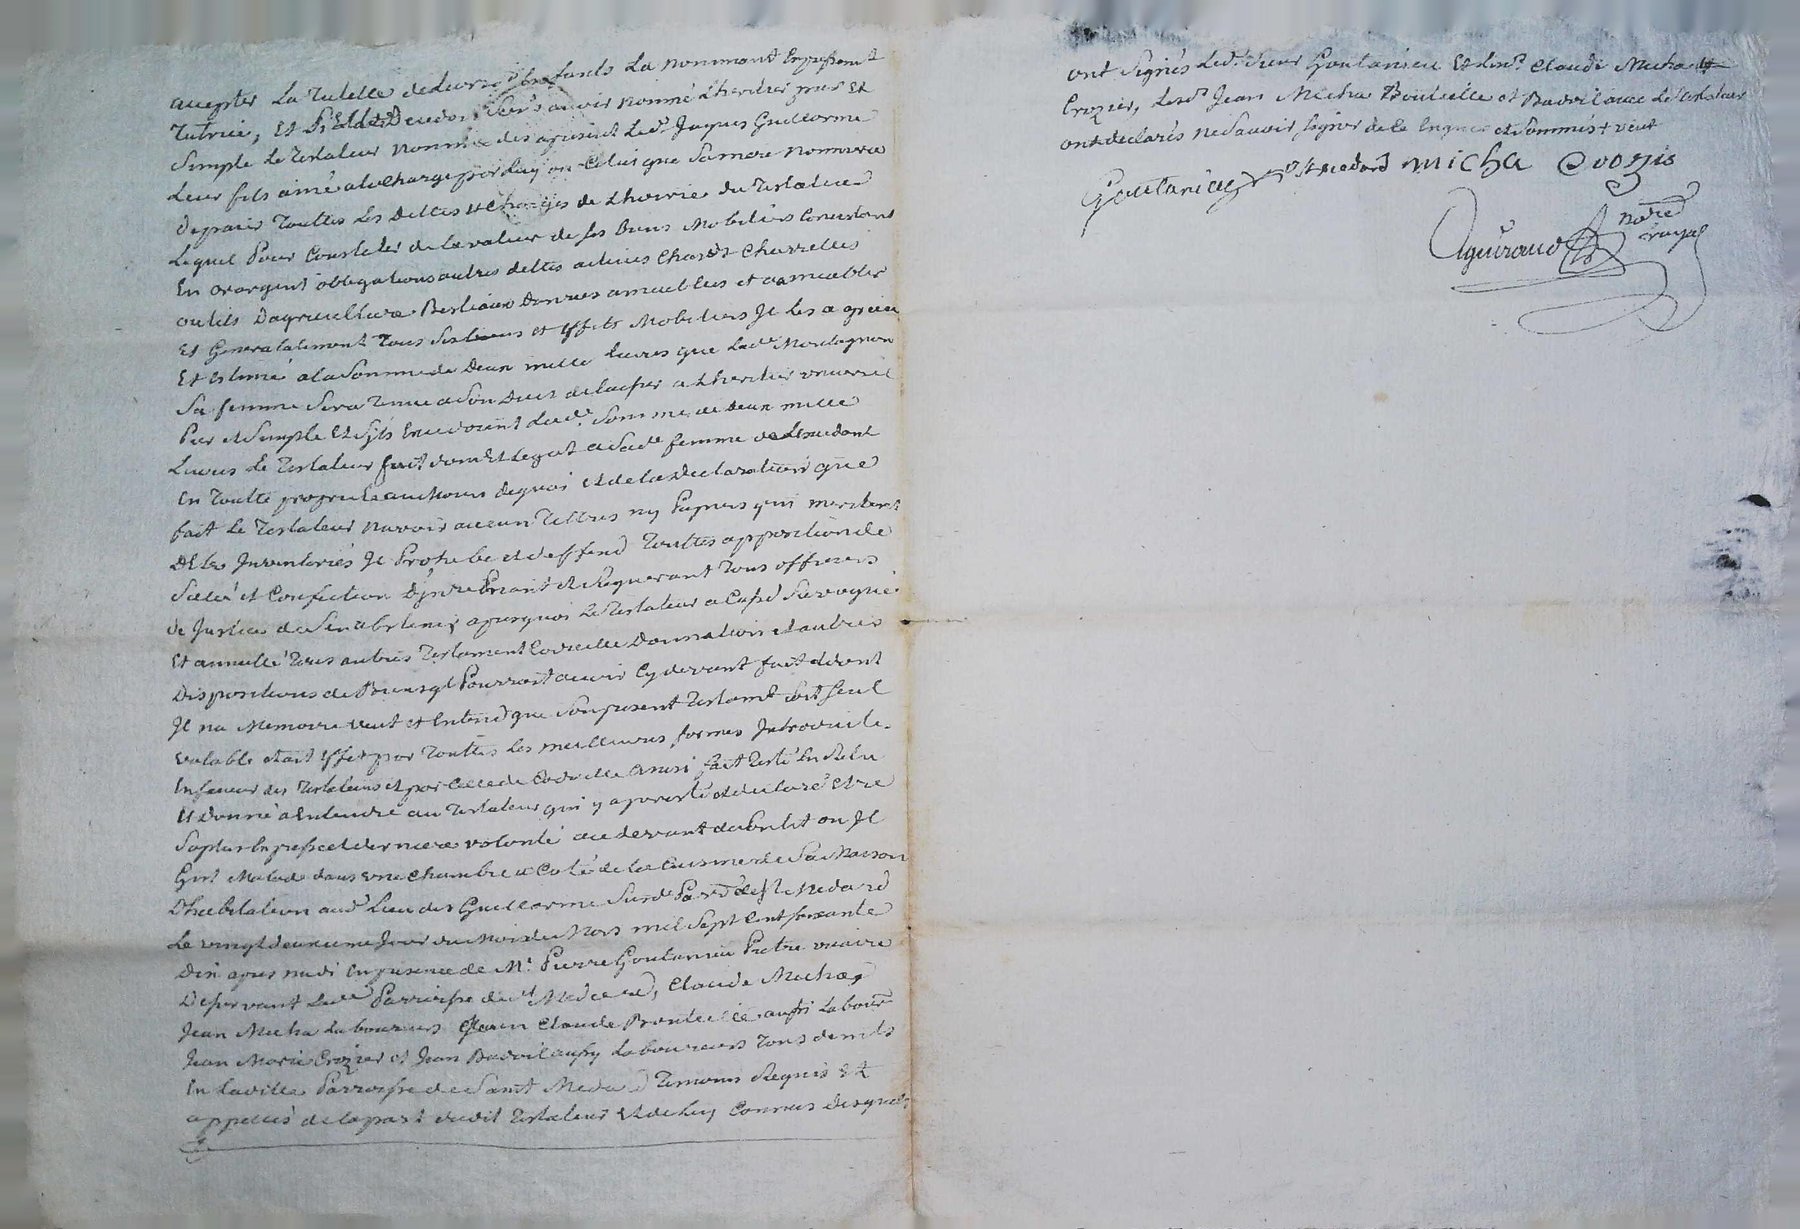 accepter La Tutelle de leursd. Enfants La nommant Expressemt
Tutrice, Et Si Elle Decedoit sans avoir nommé Lheritier pur Et
Simple Le Testateur nomme des apresent Led. Jaques Guillarme
Leur fils ainé a la charge par luy ou Celui que Sa mere nommera
de paier Touttes les Dettes et Charges de Lhoirie du Testateur
Lequel Pour Constater de la valeur de ses biens Mobiliers Consistant
En or argent obligations autres dettes actives Chars Et Charrettes
outils Dagriculture Bestiaux Danrées ameublées et a ameubler
Et Generalalement Tous Ses biens et Effets Mobiliers Il Les a
Et Estimé a la Somme de Deux mille Livres que Lade Montagnon
Sa femme Sera Tenue a Son Deces de laisser a Lheritier universel
Pur et Simple Et Sils Lade. Somme de Deux mille
Livres Le Testateur fait don Et Legat a Sade femme
En Toutte propriete au Moien dequoi et de la Declaration que
fait Le Testateur Navoir aucun Tittres ny Papiers qui meritent
DEtre Inventoriés Il Prohibe et deffend Touttes apposition de
Scellé et Confection DInventaire et Requerant Tous officiers
de Justice de Sen abstenir apresquoi Le Testateur a Cassé Revoqué
Et annullé Tous autres Testament Codicille Donnation et autres
Dispositions de Biens quil Pourroit avoir Cy devant fait dont
Il na Memoire veut et Entend que Son present Testamt Soit Seul
valable et ait Effet par Touttes Les meilleures formes Introduite
En faveur des Testateurs et par Celle de Codicille Ainsi fait Testé Lu Relu
Et Donné a Entendre au Testateur qui y a persisté et declaré Etre
Sa plus Expresse et derniere volonté au devant du Lit ou Il
Git Malade dans une chambre a Coté de la Cuisine de Sa Maison
Dhabitation aud. Lieu des Guillarme Susd. Parsse de St Medard
Le vingt deuxieme Jour du Mois de Mars mil Sept Cent Soixante
Dix apres midi En presence de Mr. Pierre Goutanieu Pretre vicaire
Desservant Lade Parroisse de St Medard, Claude Micha,
Jean Micha Laboureurs Claude Bouteille aussi Labour
Jean Marie Crozier et Jean Badoil aussy Laboureurs Tous
En Laditte Parroisse de Saint Medard Temoins Requis Et
appellés de la part dudit Testateur Et de Luy Connus Desquels
ont Signés Led. Sieur Goutanieu Et Lesd. Claude Micha
Crozier, Lesd. Jean Micha Bouteille et Badoil avec Le Testateur
ont declarés ne Savoir Signer de ce Enquis et Sommés
Goutanieu St medard micha Crozié
Aguiraud Nore
royal